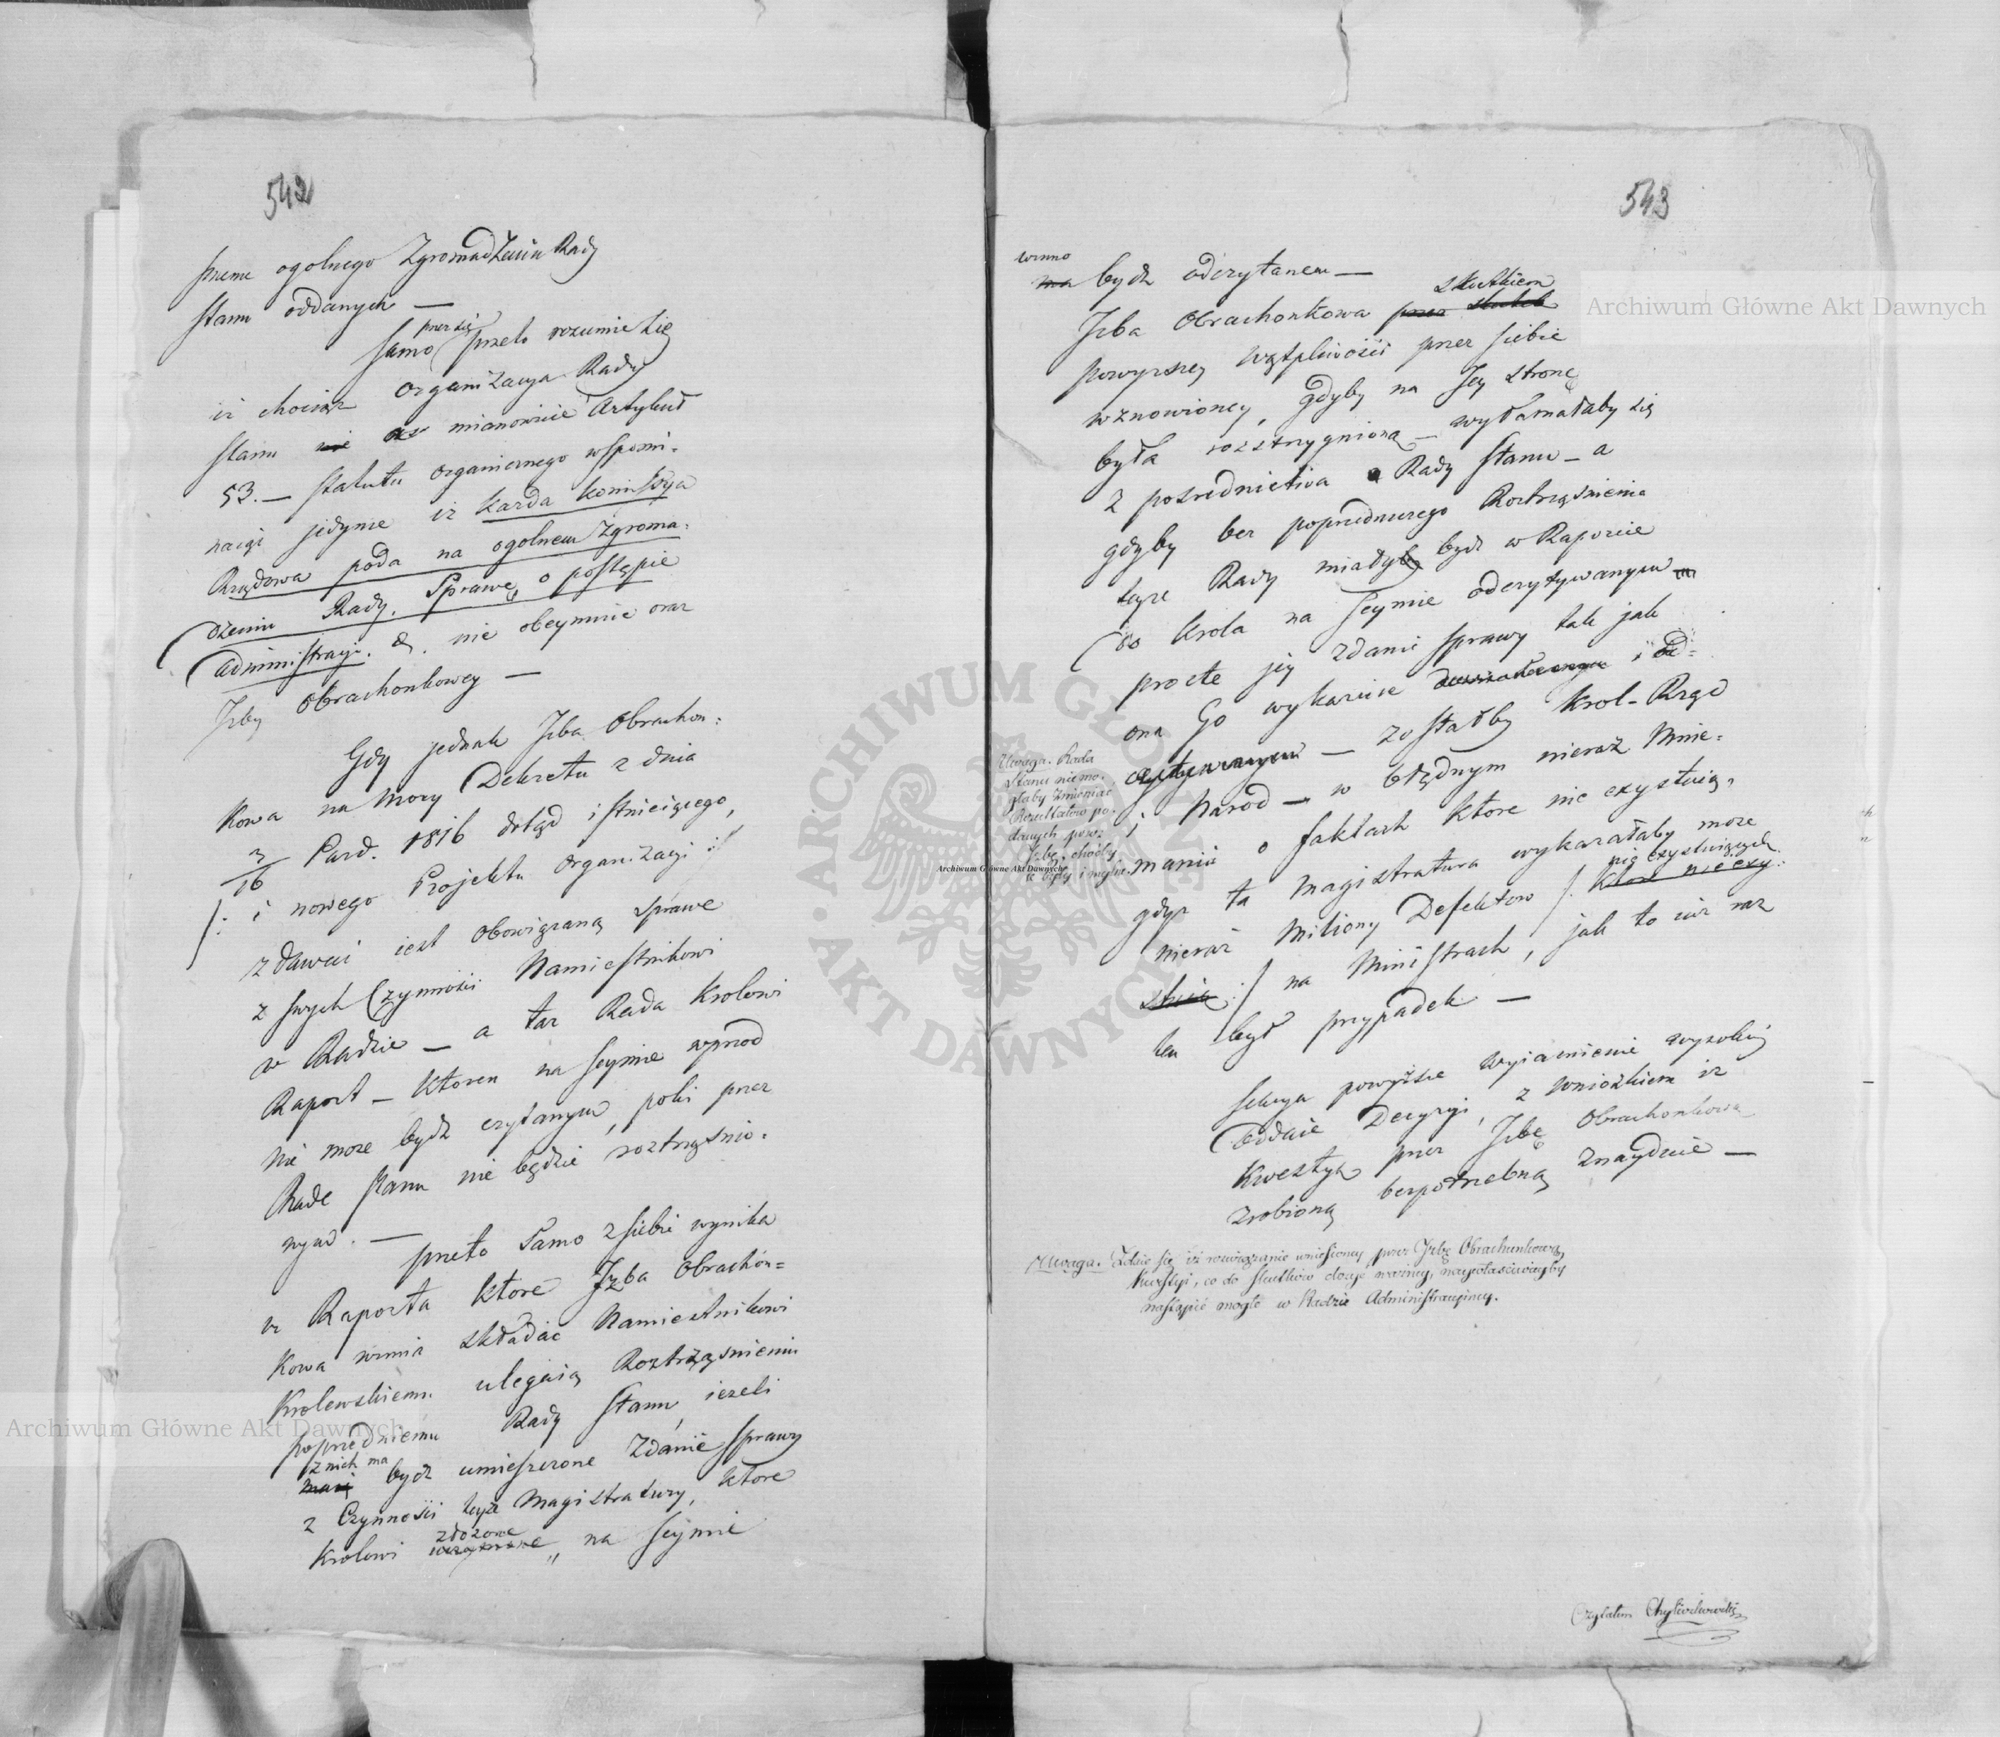 542
ogolnego Zgromadzeniu Rady
Stanu oddanych —
przez się
Samo przeto rozumie się
iż chociaż Organizacya Rady
Stanu nie mianowicie Artykuł
53. — Statutu organicznego wspomi-
naiąc jedynie iż każda kommissya
Rządowa poda na ogolnem Zgroma-
dzeniu Rady Sprawę o postępie
administracyi. &. nie obeymuie oraz
Izby Obrachonkowey —
Gdy jednak Izba Obrachon:
kowa na mocy Dekretu z dnia
3/16 Pazd. 1816 dotąd istnieiącego,
/: i nowego Projektu organizacyi :/
zdawać iest obowiązaną sprawę
z swych Czynności Namiestnikowi
w Radzie — a taż Rada Krolowi
Raport — Ktoren na Seymie wprzod
nie może bydz czytanym, poki przez
Radę Stanu nie będzie roztrząśnio-
nym. —
przeto samo z siebie wynika
iż Raporta ktore Izba Obrachon=
kowa winna składać Namiestnikowi
Krolewskiemu ulegaią Roztrząśnieniu
poprzedniemu Rady Stanu, ieżeli
z nich ma
maią bydz umieszczone Zdanie Sprawy
z Czynności teyże Magistratury, ktore
złożone
Krolowi na Seymie
543
winno
ma bydz odczytanem —
skutkiem
Izba Obrachonkowa przez skutek
powyższey wątpliwości przez siebie
wznowioney, gdyby na Jey stronę
była rozstrzygnioną — wyłamałaby się
z posrednictwa Rady Stanu — a
gdyby bez poprzedniczego Roztrząśnienia
teyże Rady miałyby bydz w Raporcie
do Krola na Seymie odczytywanym
proste jey zdanie sprawy tak jak
ona Go wykazuie i od=
czytywanym — zostałby Krol — Rząd
i Narod — w błędnym nieraz Mnie-
maniu o faktach ktore nie exystuią,
gdyż ta Magistratura wykazałaby może
nie exystuiących
nieraz Miliony Defektow /: ktore nie exy-
stuią :/ na Ministrach, jak to iuż raz
ten był przypadek —
Uwaga. Rada
Stanu niemo-
głaby zmieniać
Rezultatow po-
danych przez
Izbę, choćby
te były i mylne.
Sekcya powyższe wyiasnienie wysokiey
oddaie Decyzyi, z wnioskiem iż
Kwestya przez Izbę Obrachonkową
zrobioną bezpotrzebną znayduie —
Uwaga. Zdaie się iż rozwiązanie wniesioney przez Izbę Obrachunkową
Kwestyi, co do skutkow dosyć ważney, naywłaściwieyby
nastąpić mogło w Radzie Administracyiney.
Czytałem
Archiwum Główne Akt Dawnych
Archiwum Główne Akt Dawnych
Archiwum Główne Akt Dawnych
ARCHIWUM GŁÓWNE AKT DAWNYCH